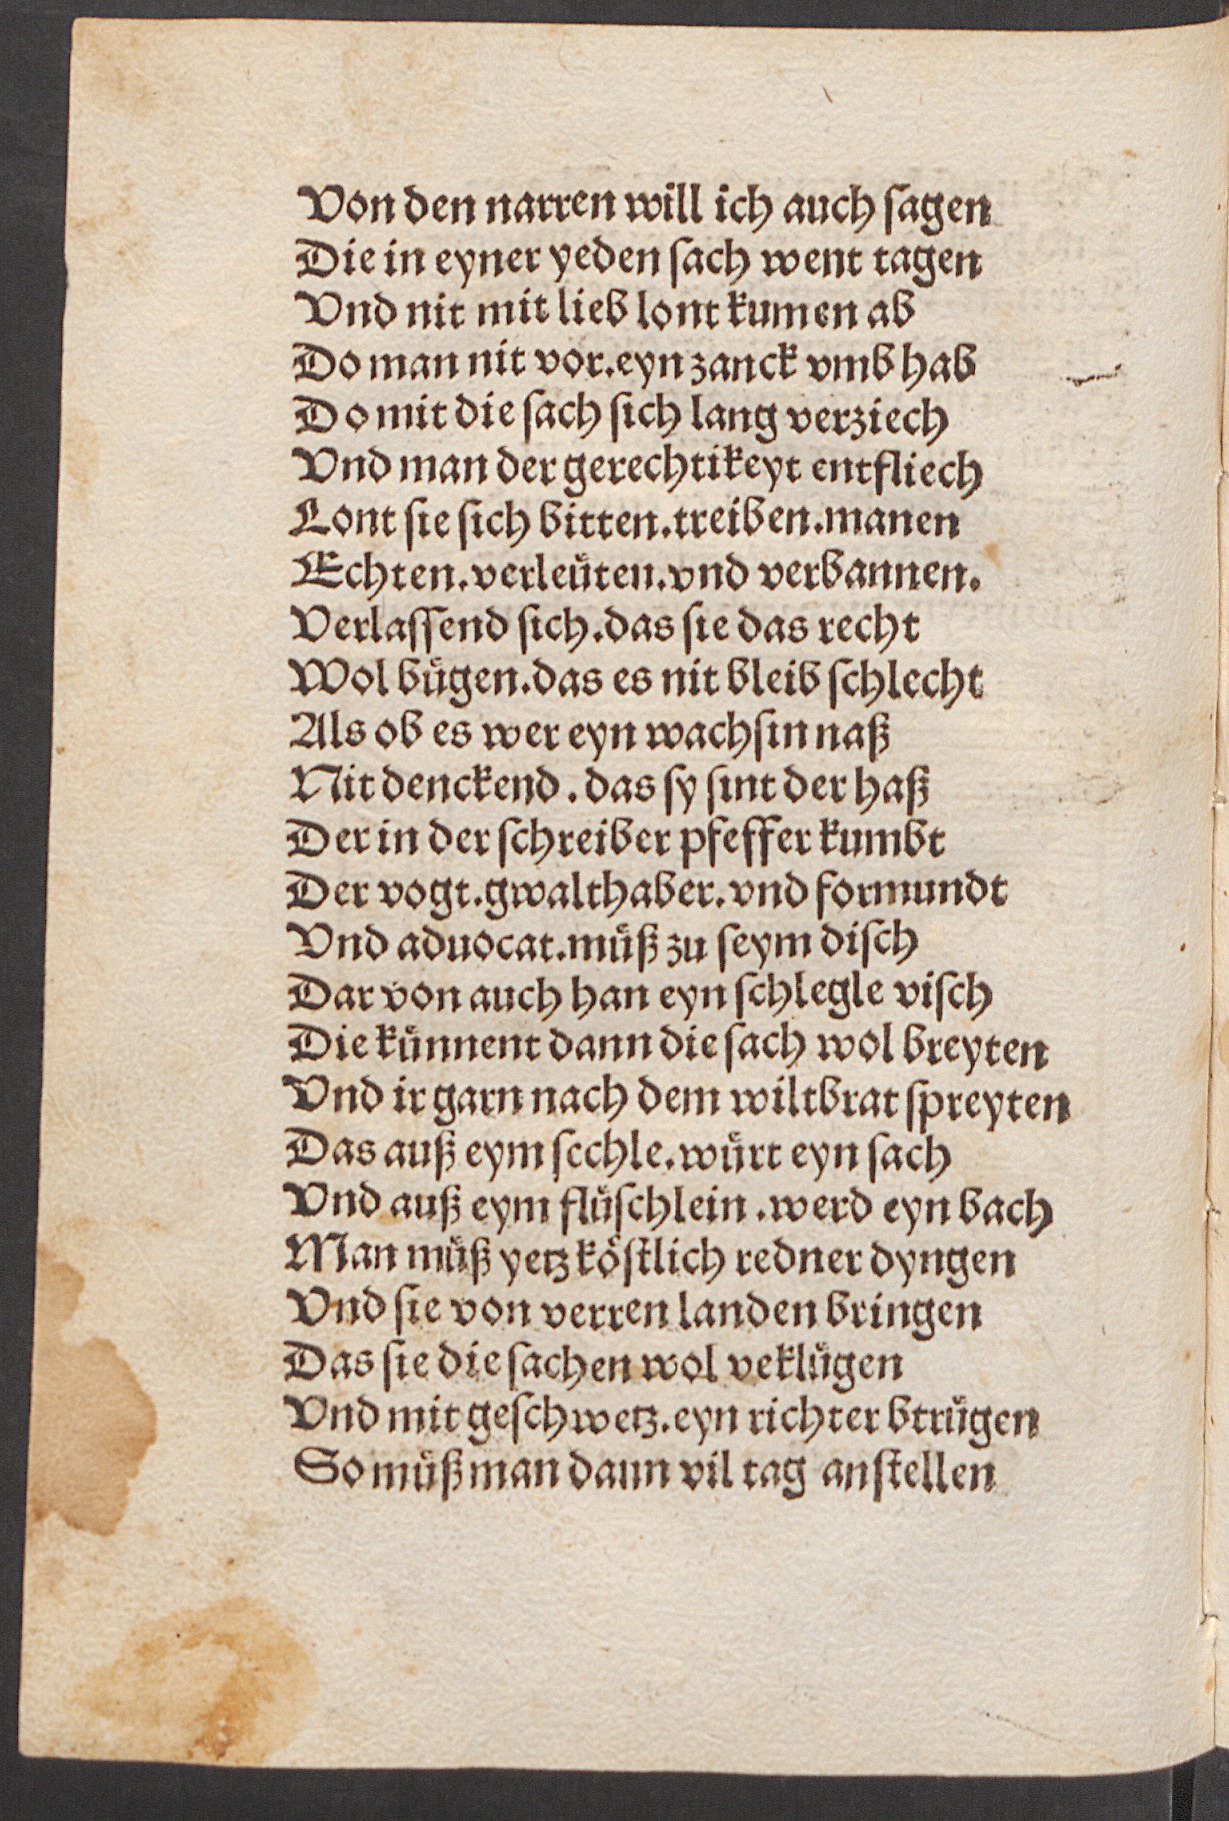 Von den narren will ich auch ſagen
Die in eyner yeden ſach went tagen
Vnd nit mit lieb lont kumen ab
Do man nit vor.eyn zanck vmb hab
Do mit die ſach ſich lang verziech
Vnd man der gerechtikeyt entfliech
Lont ſie ſich bitten.treiben.manen
Echten.verleüten.vnd verbannen.
Verlaſſend ſich.das ſie das recht
Wol bügen.das es nit bleib ſchlecht
Als ob es wer eyn wachſin naß
Nit denckend.das ſy ſint der haß
Der in der ſchreiber pfeffer kumbt
Der vogt.gwalthaber.vnd formundt
Vnd aduocat.müß zu ſeym diſch
Dar von auch han eyn ſchlegle viſch
Die künnent dann die ſach wol breyten
Vnd ir garn nach dem wiltbrat ſpreyten
Das auß eym ſechle.würt eyn ſach
Vnd auß eym flüſchlein.werd eyn bach
Man müß yetz köſtlich redner dyngen
Vnd ſie von verren landen bringen
Das ſie die ſachen wol veklügen
Vnd mit geſchwetz.eyn richter btrügen
So müß man dann vil tag anſtellen